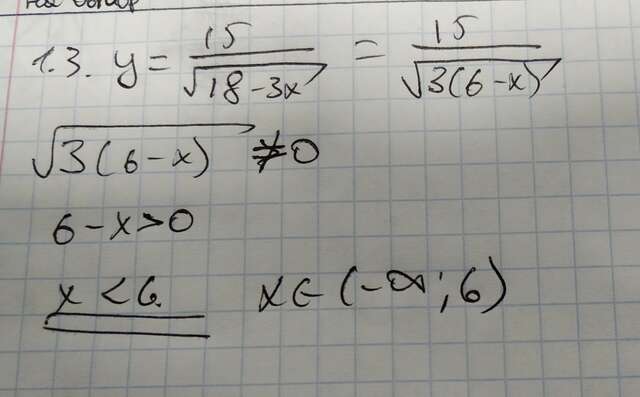 1.3. y = 15/√(18-3x) = 15/√(3(6-x))
√(3(6-x)) ≠ 0
6-x>0
x<6 x∈(-∞;6)